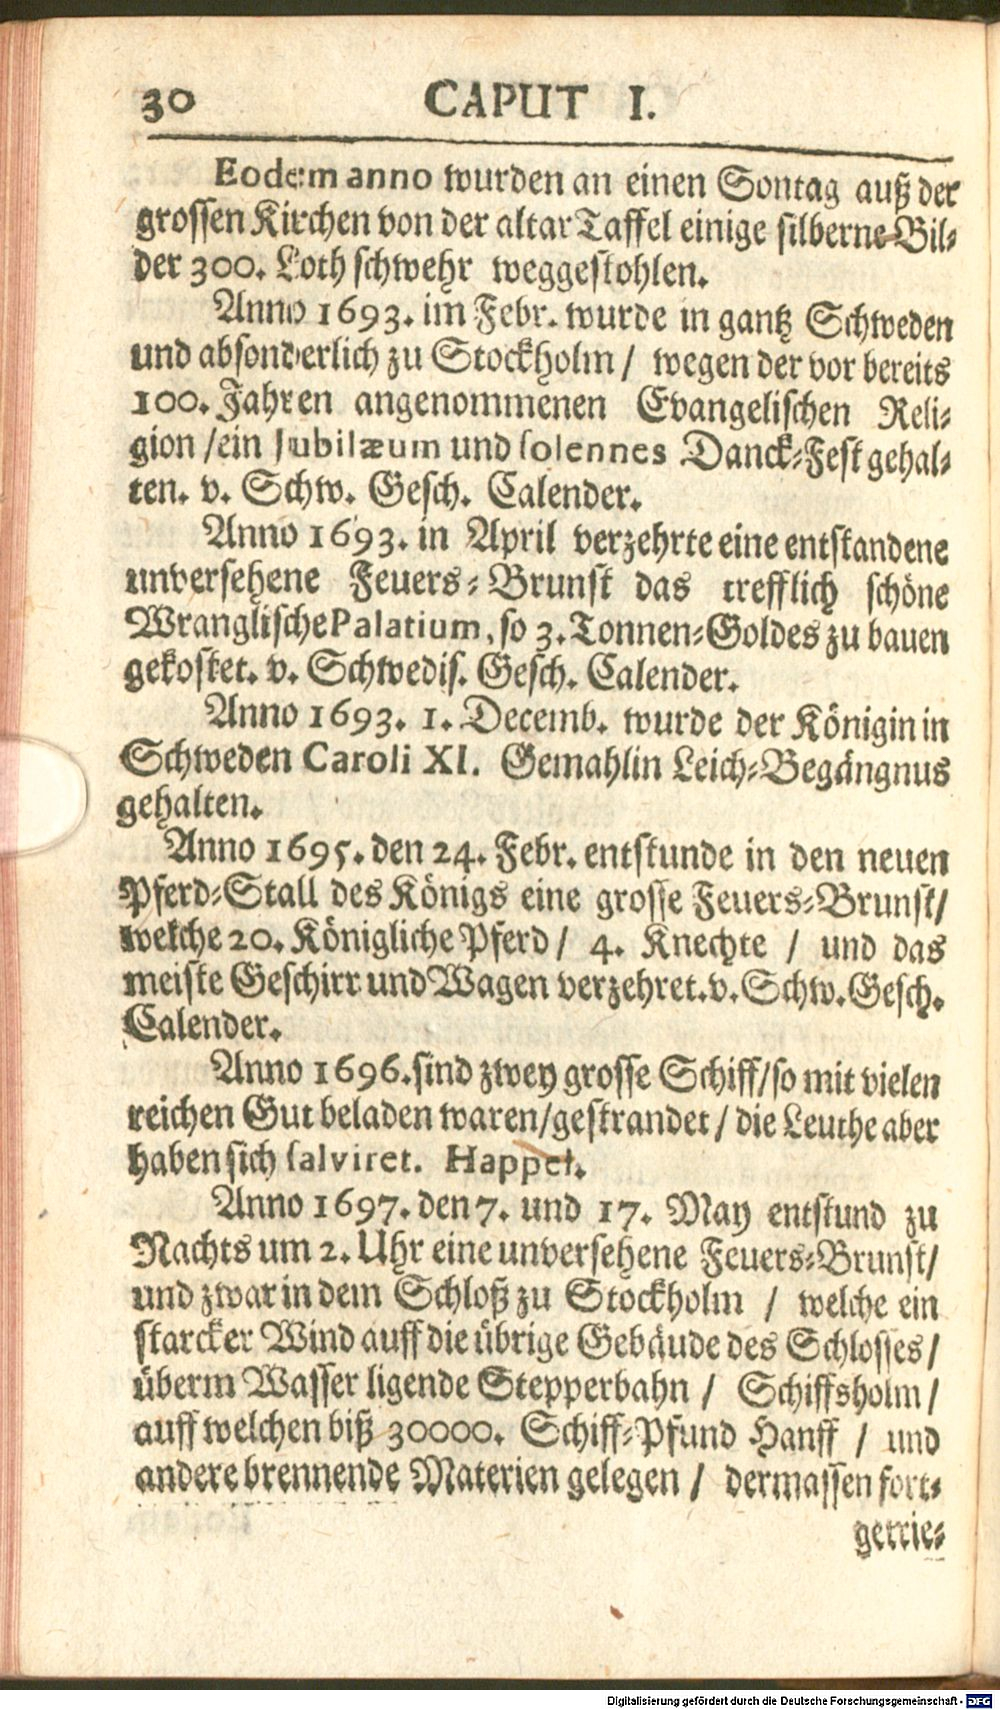 30 CAPUT I.
Eodem anno wurden an einen Sontag auß der
grossen Kirchen von der altar Taffel einige silberne Bil-
der 300. Loth schwehr weggestohlen.
Anno 1693. im Febr. wurde in gantz Schweden
und absonderlich zu Stockholm / wegen der vor bereits
100. Jahren angenommenen Evangelischen Reli-
gion / ein Jubilæum und solennes Danck-Fest gehal-
ten. v. Schw. Gesch. Calender.
Anno 1693. in April verzehrte eine entstandene
unversehene Feuers-Brunst das trefflich schöne
Wranglische Palatium, so 3. Tonnen-Goldes zu bauen
gekostet. v. Schwedis. Gesch. Calender.
Anno 1693. 1. Decemb. wurde der Königin in
Schweden Caroli XI. Gemahlin Leich-Begängnus
gehalten.
Anno 1695. den 24. Febr. entstunde in den neuen
Pferd-Stall des Königs eine grosse Feuers-Brunst/
welche 20. Königliche Pferd / 4. Knechte / und das
meiste Geschirr und Wagen verzehret. v. Schw. Gesch.
Calender.
Anno 1696. sind zwey grosse Schiff/so mit vielen
reichen Gut beladen waren/gestrandet / die Leuthe aber
haben sich salviret. Happel.
Anno 1697. den 7. und 17. May entstund zu
Nachts um 2. Uhr eine unversehene Feuers-Brunst/
und zwar in dem Schloß zu Stockholm / welche ein
starcker Wind auff die übrige Gebäude des Schlosses /
überm Wasser ligende Stepperbahn / Schiffsholm /
auff welchen biß 30000. Schiff-Pfund Hanff / und
andere brennende Materien gelegen / dermassen fort-
getrie-
Digitalisierung gefördert durch die Deutsche Forschungsgemeinschaft - DFG